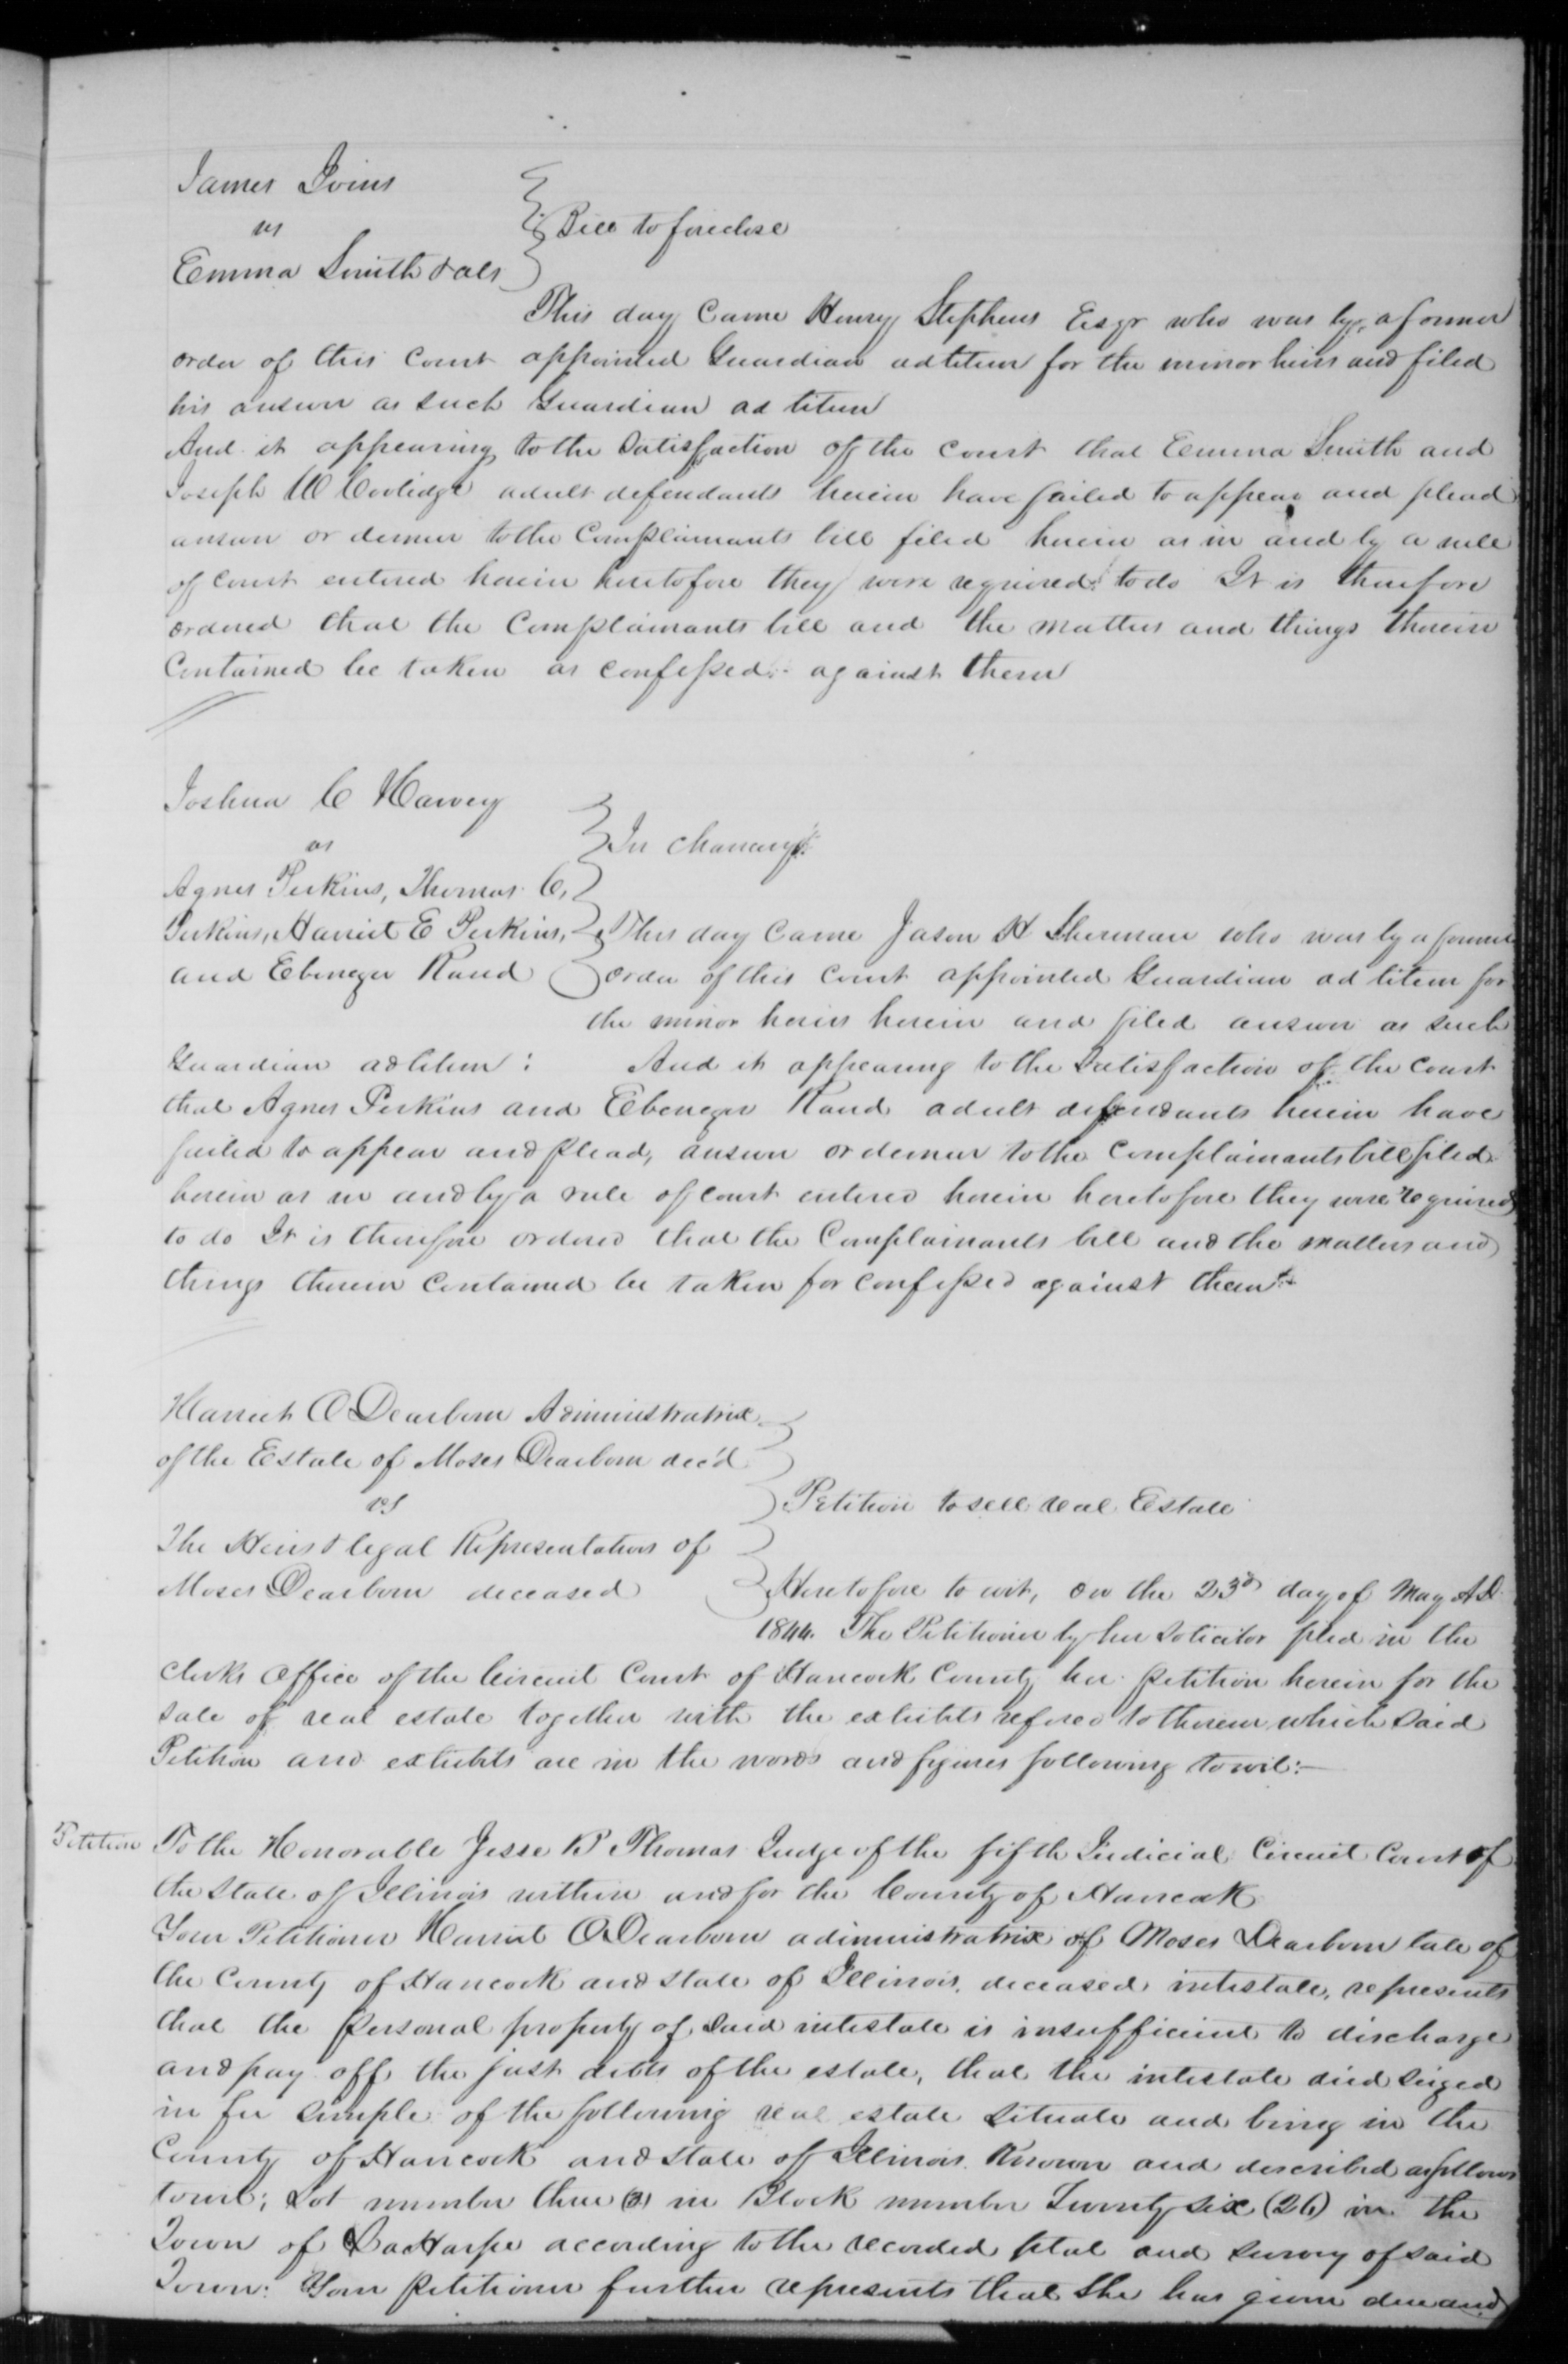 James Ivins
vs
Emma Smith & als
Bill to foreclose
This day Came Henry Stephens Esqr who was by a former
order of this Court appointed Guardian ad litem for the minor heirs and filed
his answer as such Guardian ad litem
And it appearing to the Satisfaction of the Court that Emma Smith and
Joseph W Coolidge adult defendants herein have failed to appear and plead
answer or demur to the Complainants bill filed herein as in and by a rule
of Court entered herein heretofore they were required to do It is therefore
ordered that the Complainants bill and the matters and things therein
Contained be taken as confessed against them
Joshua C Harvey
vs
Agnes Perkins, Thomas C.
Perkins, Harriet E Perkins,
and Ebenezer Rand
In chancery
This day Came Jason H Sherman who was by a former
order of this Court appointed Guardian ad litem for
the minor heirs herein and filed answer as such
Guardian ad litem: And it appearing to the Satisfaction of the Court
that Agnes Perkins and Ebenezer Rand adult defendants herein have
failed to appear and plead, answer or demur to the Complainants bill filed
herein as in and by a rule of Court entered herein heretofore they were required
to do It is therefore ordered that the Complainants bill and the matters and
things therein Contained be taken for confessed against them
Harriet O Dearborn Administratrix
of the Estate of Moses Dearborn dec'd
vs
The Heirs & legal Representatives of
Moses Dearborn deceased
Petition to sell real Estate
Heretofore to wit, on the 23d day of May A.D.
1844. The Petitioner by her Solicitor filed in the
clerks office of the Circuit Court of Hancock County her petition herein for the
sale of real estate together with the exhibits refered to therein which said
Petition and exhibits are in the words and figures following towit:—
Petition To the Honorable Jesse B Thomas Judge of the fifth Judicial Circuit Court of
the State of Illinois within and for the County of Hancock
Your Petitioner Harriet O Dearborn administratrix of Moses Dearborn late of
the County of Hancock and State of Illinois, deceased intestate, represents
that the personal property of said intestate is insufficient to discharge
and pay off the just debts of the estate, that the intestate died seized
in fee simple of the following real estate situate and being in the
County of Hancock and State of Illinois Known and described as follows
towit; Lot number three (3) in Block number Twenty six (26) in the
Town of La Harpe according to the recorded plat and survey of said
Town: Your petitioner further represents that she has given due and